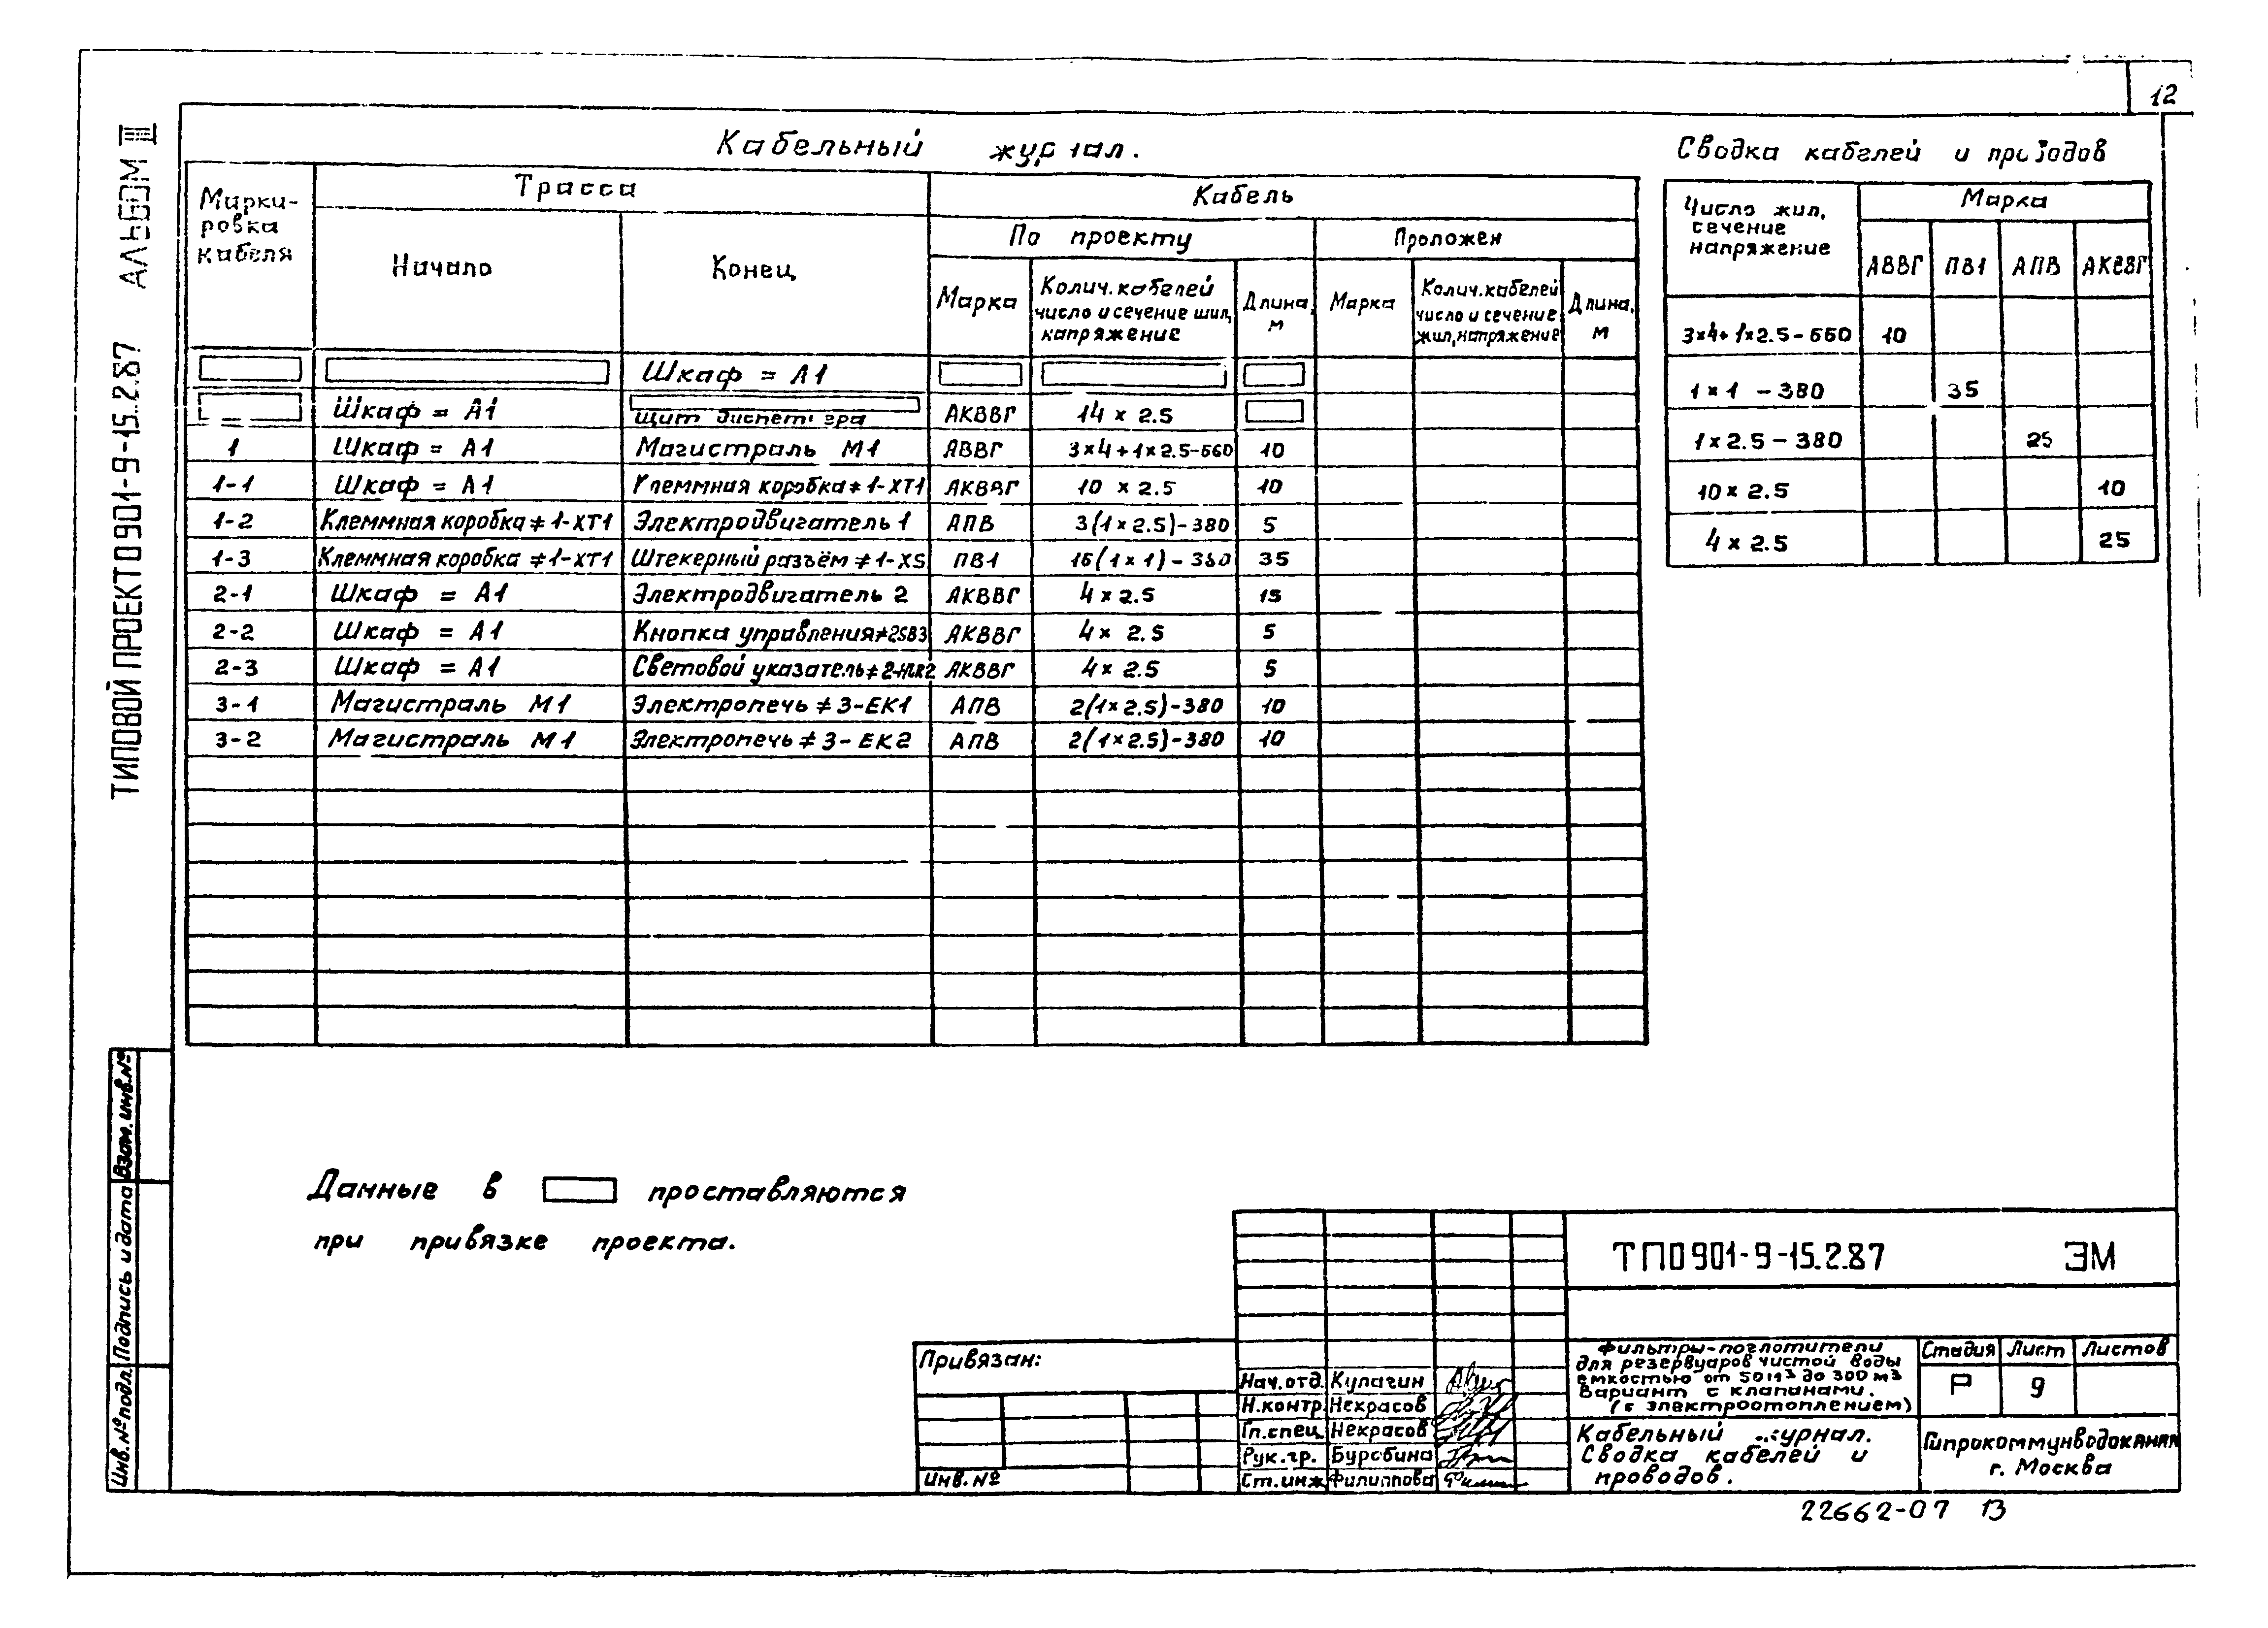 12
ТИПОВОЙ ПРОЕКТ 0901-9-15.2.87 АЛЬБОМ III
Кабельный журнал.
Маркировка кабеля | Трасса | Кабель
Начало | Конец | По проекту | Проложен
Марка | Колич. кабелей число и сечение жил, напряжение | Длина, м | Марка | Колич. кабелей число и сечение жил, напряжение | Длина, м
Шкаф = А1
Шкаф = А1 | Щит диспетчера | АКВВГ | 14 × 2.5
1 | Шкаф = А1 | Магистраль М1 | АВВГ | 3×4+1×2.5-660 | 10
1-1 | Шкаф = А1 | Клеммная коробка ≠ 1-ХТ1 | АКВВГ | 10 × 2.5 | 10
1-2 | Клеммная коробка ≠ 1-ХТ1 | Электродвигатель 1 | АПВ | 3(1×2.5)-380 | 5
1-3 | Клеммная коробка ≠ 1-ХТ1 | Штекерный разъём ≠ 1-XS | ПВ1 | 16(1×1)-380 | 35
2-1 | Шкаф = А1 | Электродвигатель 2 | АКВВГ | 4×2.5 | 15
2-2 | Шкаф = А1 | Кнопка управления ≠ 2SB3 | АКВВГ | 4× 2.5 | 5
2-3 | Шкаф = А1 | Световой указатель ≠ 2-HLR2 | АКВВГ | 4× 2.5 | 5
3-1 | Магистраль М1 | Электропечь ≠ 3-ЕК1 | АПВ | 2(1×2.5)-380 | 10
3-2 | Магистраль М1 | Электропечь ≠ 3-ЕК2 | АПВ | 2(1×2.5)-380 | 10
Сводка кабелей и проводов
Число жил, сечение напряжение | Марка
АВВГ | ПВ1 | АПВ | АКВВГ
3×4+1×2.5-660 | 10
1×1 -380 | 35
1×2.5-380 | 25
10×2.5 | 10
4×2.5 | 25
Данные в проставляются
при привязке проекта.
Взам. инв. №
Подпись и дата
Инв. № подл.
Привязан:
Инв. №
Нач.отд. Кулагин
Н.контр. Некрасов
Гл.спец. Некрасов
Рук.гр. Буробина
Ст.инж. Филиппова
ТП0901-9-15.2.87 ЭМ
Фильтры-поглотители
для резервуаров чистой воды
емкостью от 50 м³ до 300 м³
Вариант с клапанами.
(с электроотоплением)
Стадия | Лист | Листов
Р | 9
Кабельный журнал.
Сводка кабелей и
проводов.
Гипрокоммунводоканал
г. Москва
22662-07 13